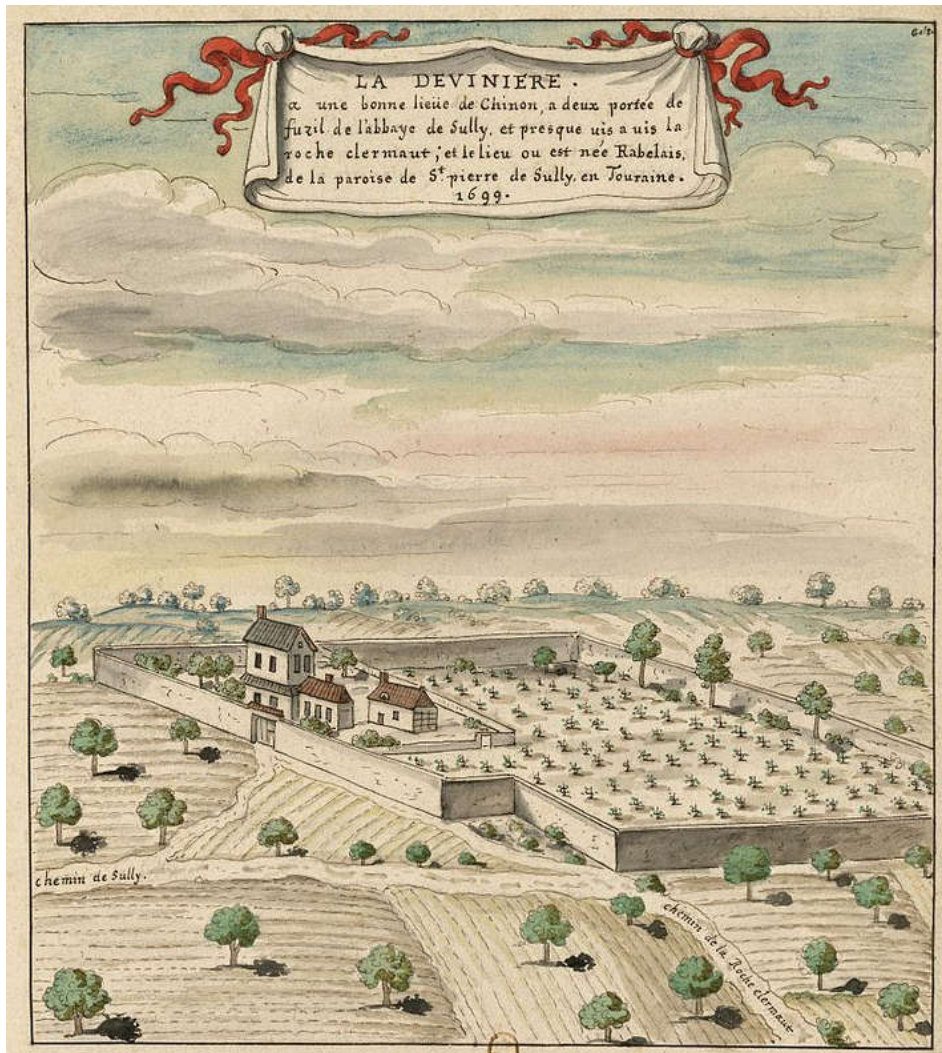 LA DEVINIERE.
a une bonne lieüe de Chinon, a deux portée de
fuzil de l'abbaye de Sully, et presque uis a uis la
roche clermaut; et le lieu ou est née Rabelais,
de la paroise de St. pierre de Sully, en Touraine.
1699.
chemin de Sully.
chemin de la Roche clermaut